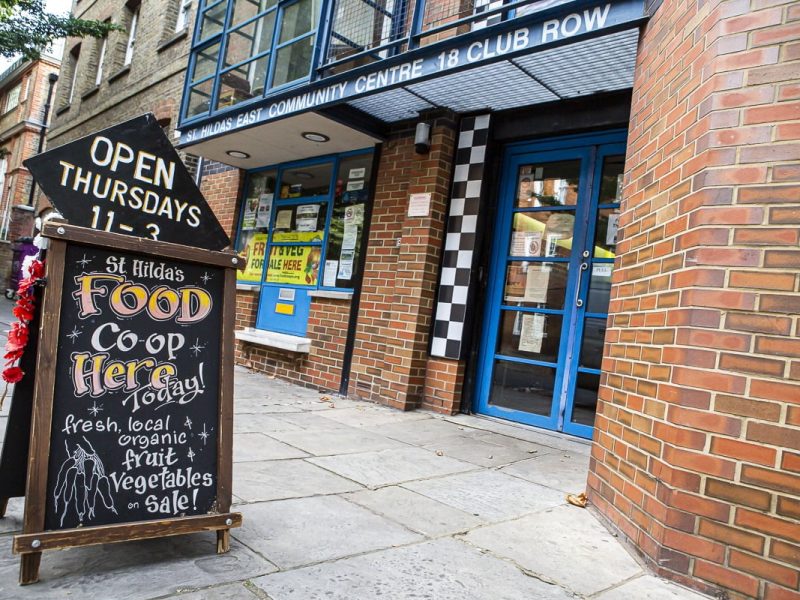 ST. HILDAS EAST COMMUNITY CENTRE 18 CLUB ROW
OPEN
THURSDAYS
11-3
St Hilda's
FOOD
Co-op
Here
Today!
fresh, local
organic
fruit
vegetables
on sale!
FRUIT & VEG
FOR SALE HERE